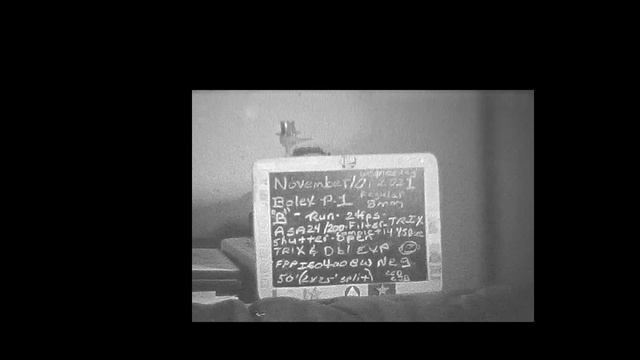 Wednesday
November 10, 2021
Bolex P.1 Regular 8mm
"B" - Run - 24fps -
ASA 24/200 - Filter - TRIX
Shutter - Open
TRIX & Dbl EXP
FPP ISO400 BW Neg
50' (2x25' split)